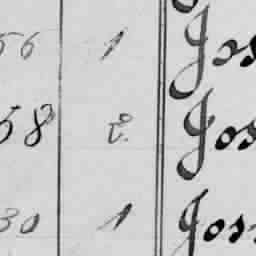 56 1 Jos
58 2. Jos
30 1 Jos